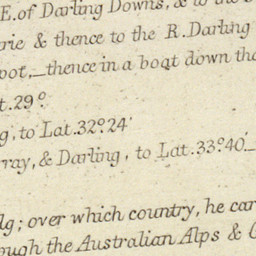 E. of Darling Downs, & to the
rie & thence to the R. Darling
pot, _thence in a boat down the
t. 29°
g, to Lat. 32° 24'
ray, & Darling, to Lat. 33° 40'_
lg; over which country, he car
ough the Australian Alps &